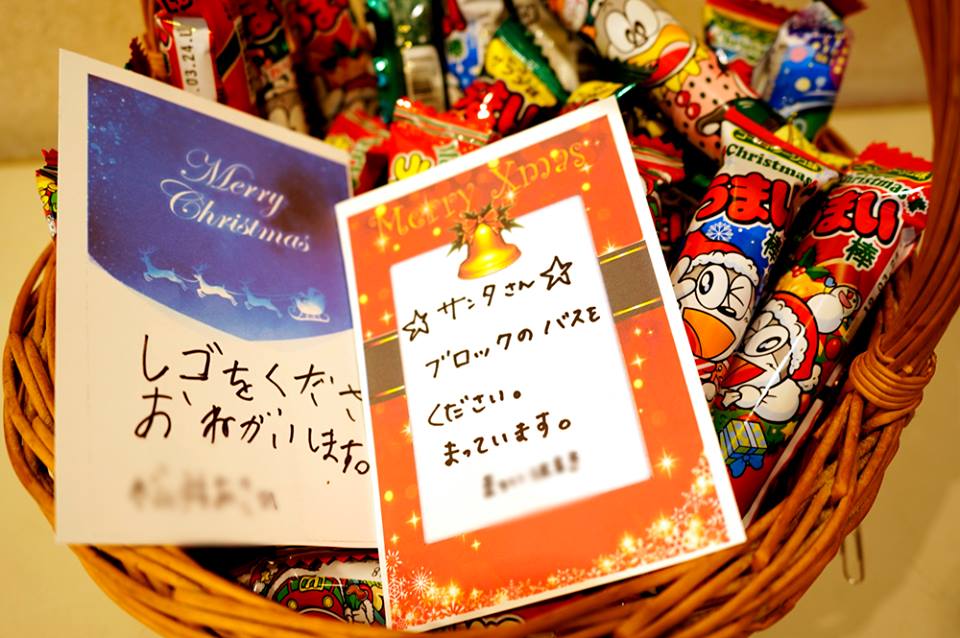 Merry
Christmas
レゴをくださ
おねがいします。
Merry Xmas
☆サンタさん☆
ブロックのバスを
ください。
まっています。
.03.24.
Christmas
うまい
棒
Christmas
まい
棒